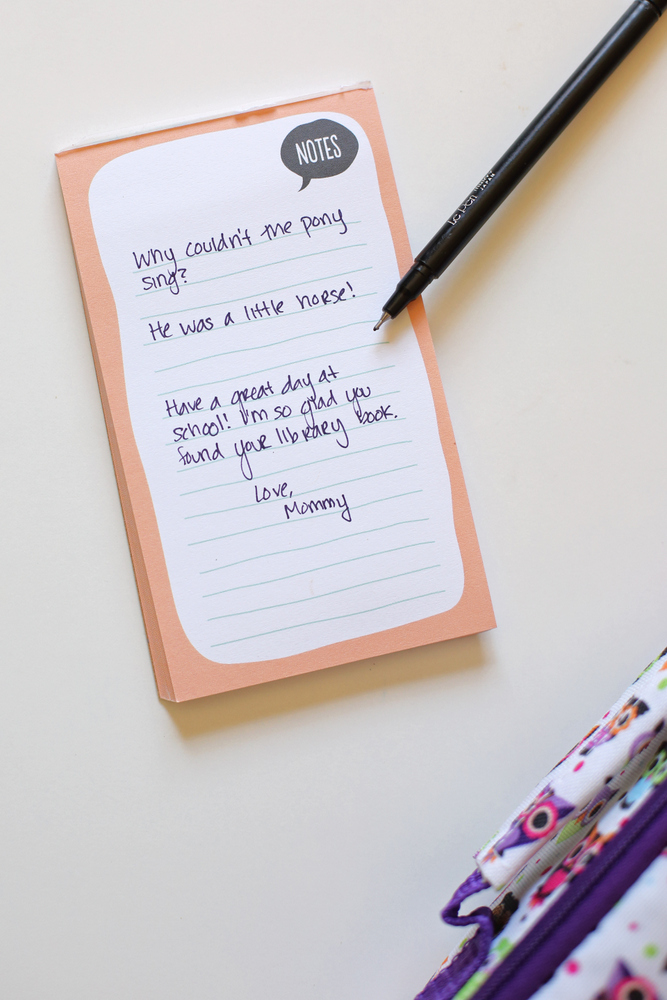 NOTES
Why couldn't the pony
sing?
He was a little horse!
Have a great day at
school! I'm so glad you
found your library book.
Love,
Mommy
Le Pen